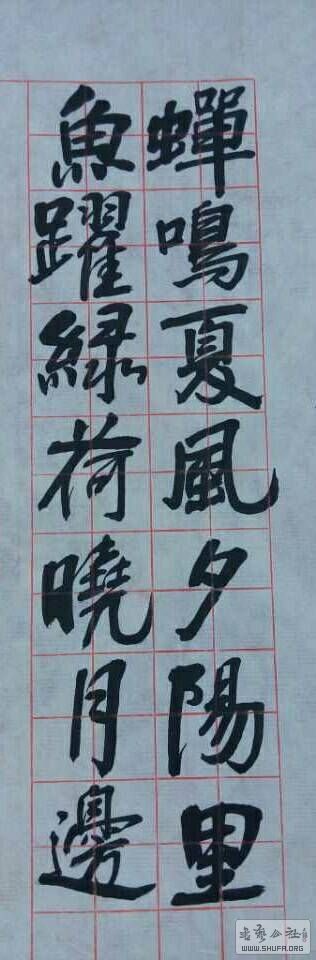 蟬鳴夏風夕陽里
魚躍緑荷曉月邊
WWW.SHUFA.ORG